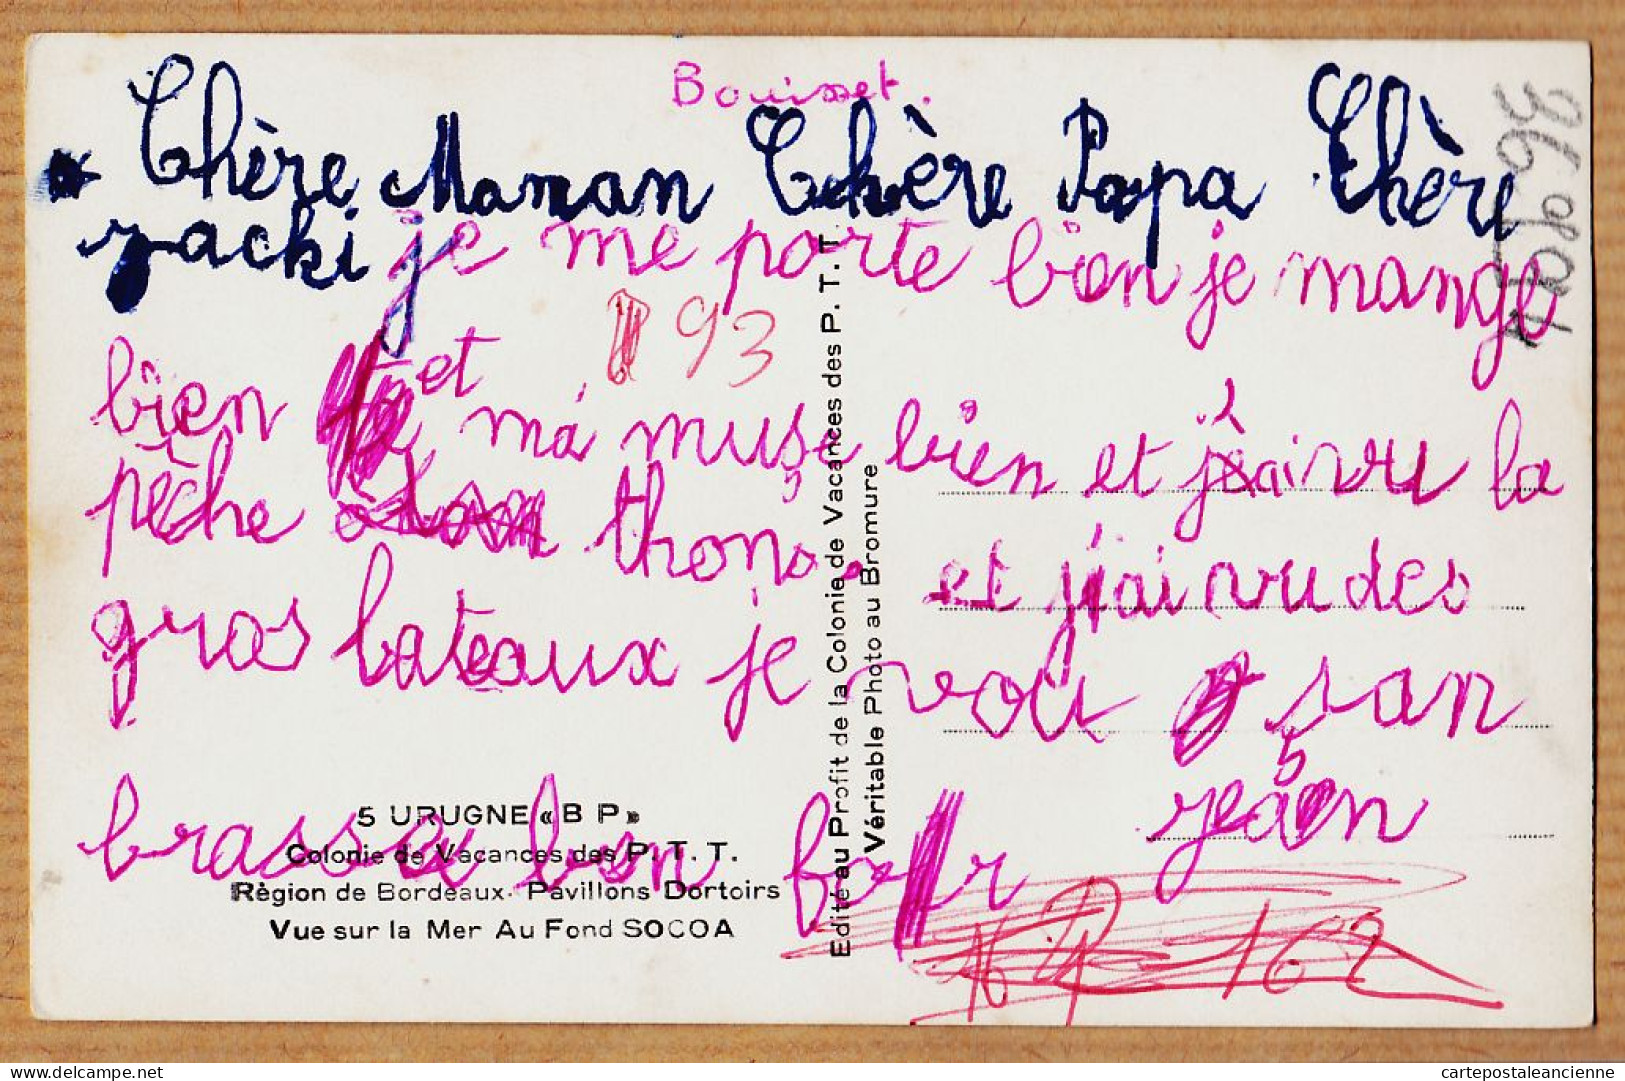 Bouisset.
Chère Maman Chère Papa Chère
yacki je me porte bien je mange
93
bien et m'a muse bien et j'ai vu la
pêche thons. et j'ai vu des
gros bateaux je vou san
brasse bon for jean
5 URUGNE «B P»
Colonie de Vacances des P. T. T.
Règion de Bordeaux. Pavillons Dortoirs
Vue sur la Mer Au Fond SOCOA
Edité au Profit de la Colonie de Vacances des P. T. T.
Véritable Photo au Bromure
162
cartepostaleancienne.com